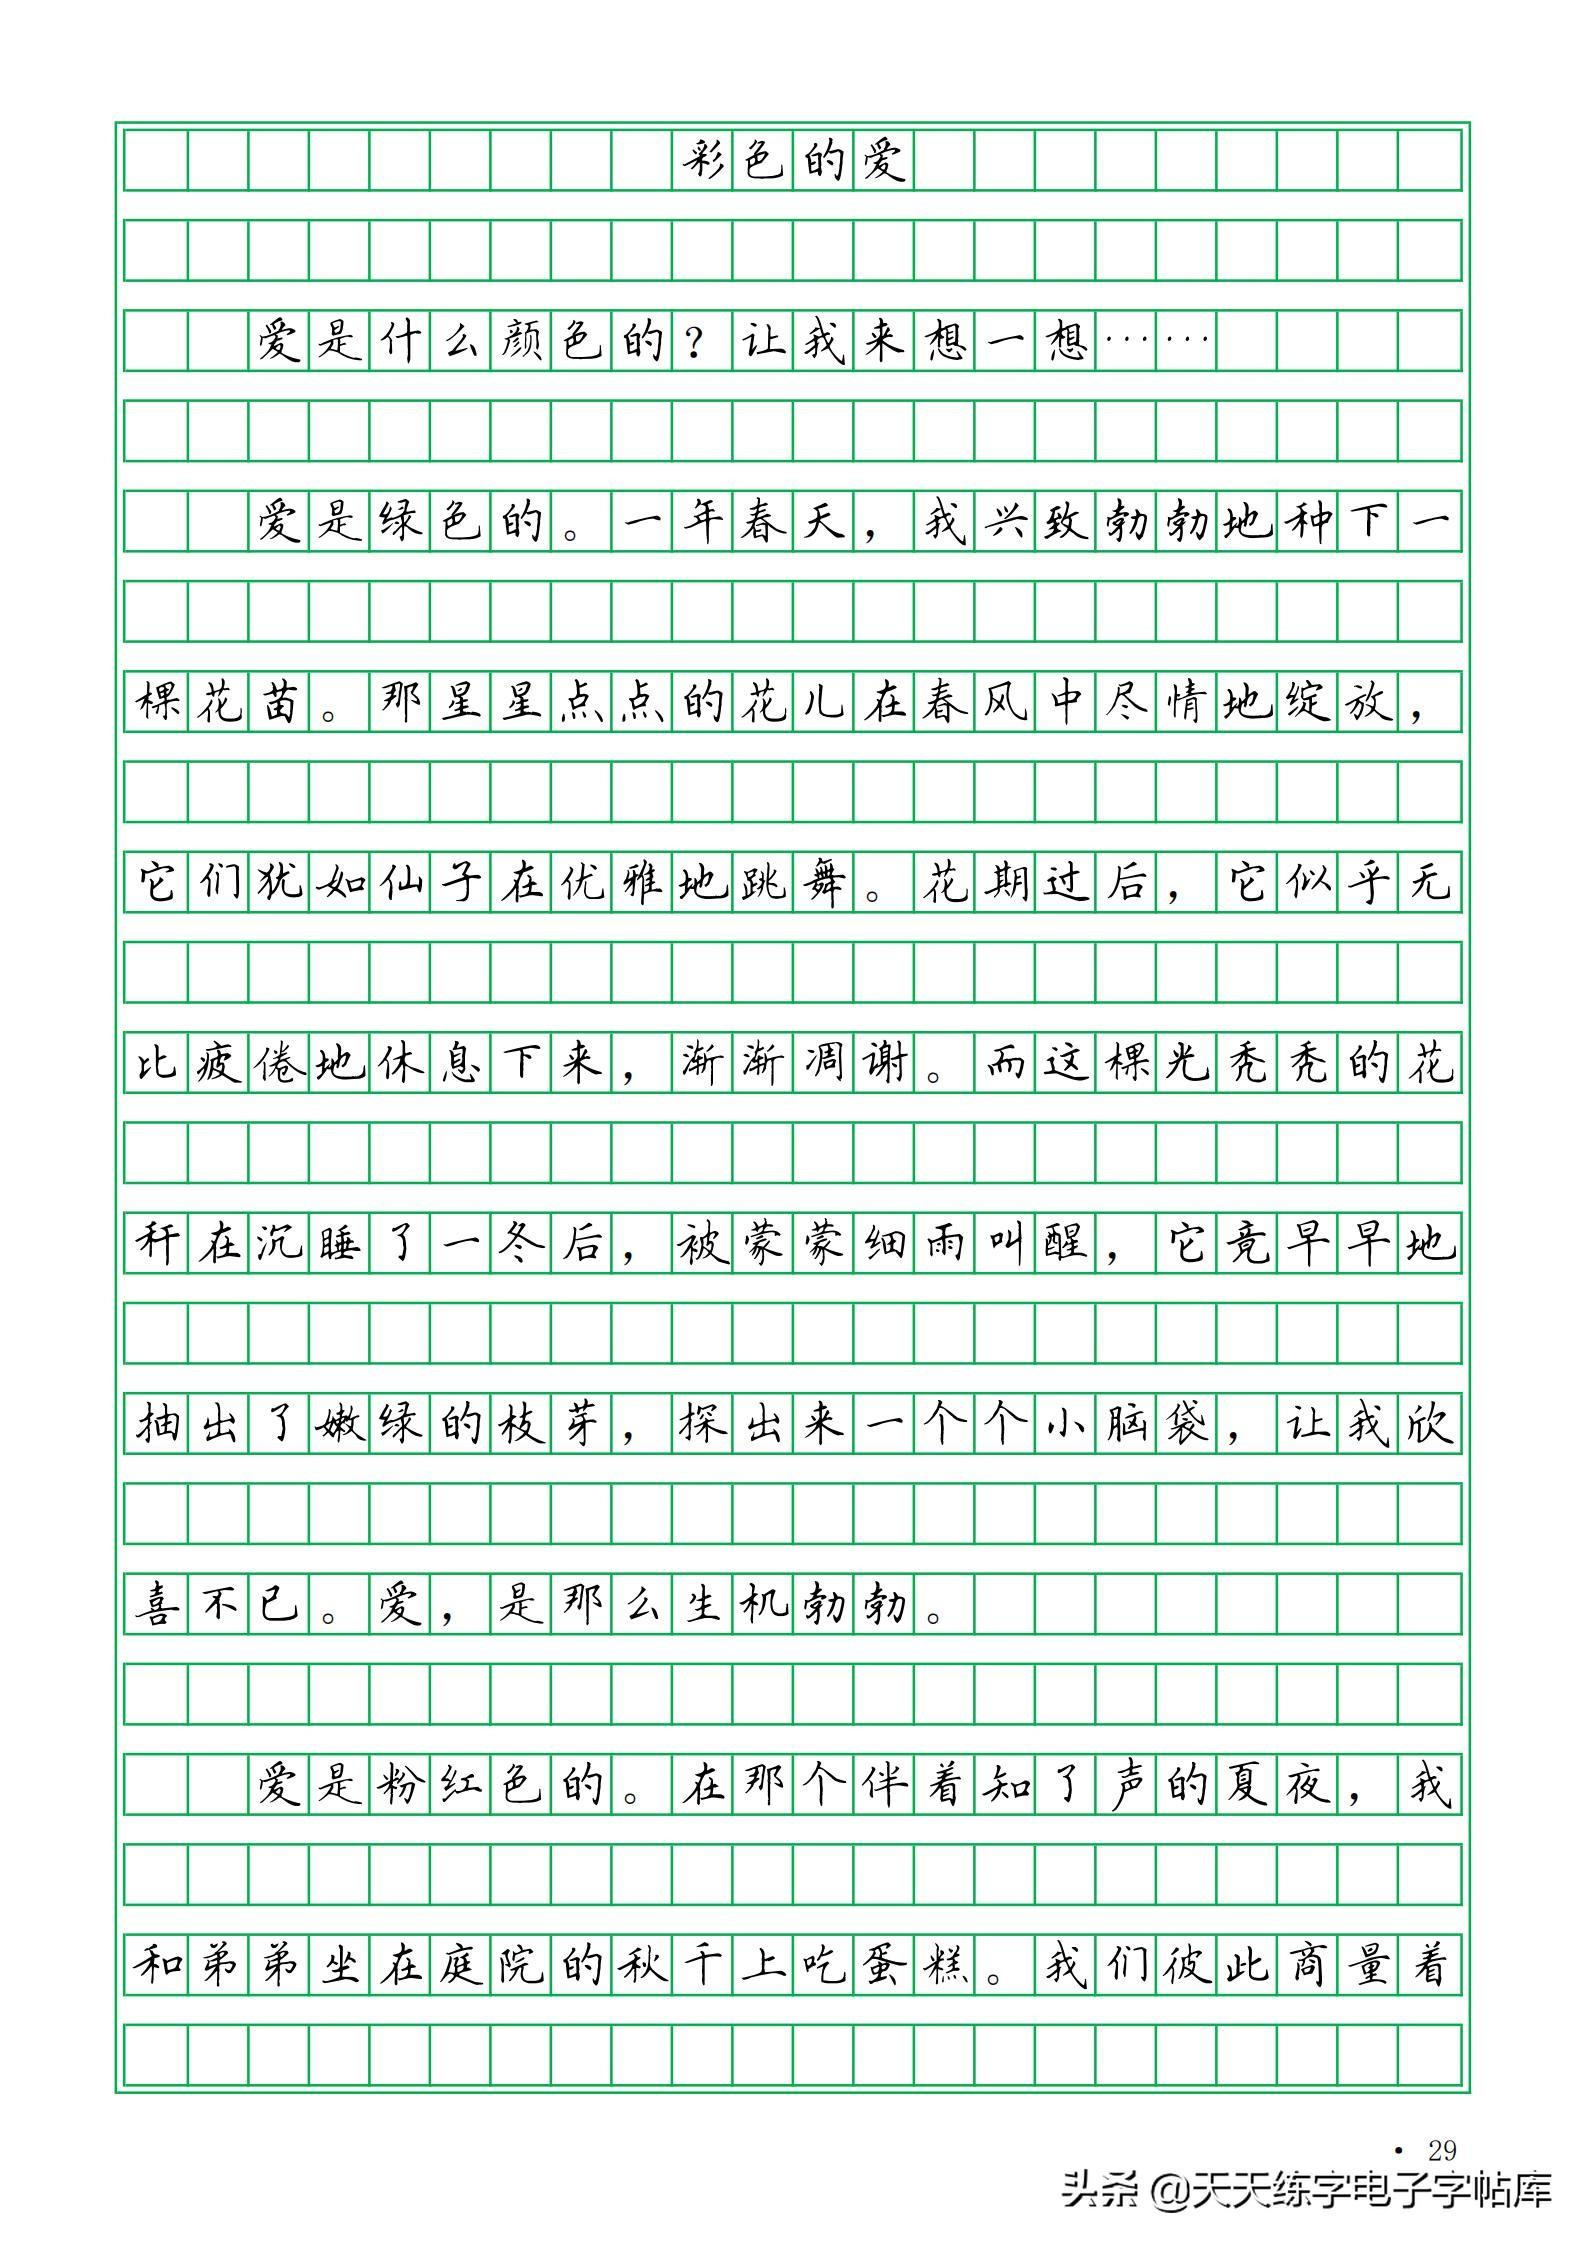 彩色的爱
爱是什么颜色的？让我来想一想……
爱是绿色的。一年春天，我兴致勃勃地种下一
棵花苗。那星星点点的花儿在春风中尽情地绽放，
它们犹如仙子在优雅地跳舞。花期过后，它似乎无
比疲倦地休息下来，渐渐凋谢。而这棵光秃秃的花
秆在沉睡了一冬后，被蒙蒙细雨叫醒，它竟早早地
抽出了嫩绿的枝芽，探出来一个个小脑袋，让我欣
喜不已。爱，是那么生机勃勃。
爱是粉红色的。在那个伴着知了声的夏夜，我
和弟弟坐在庭院的秋千上吃蛋糕。我们彼此商量着
· 29
头条 @天天练字电子字帖库